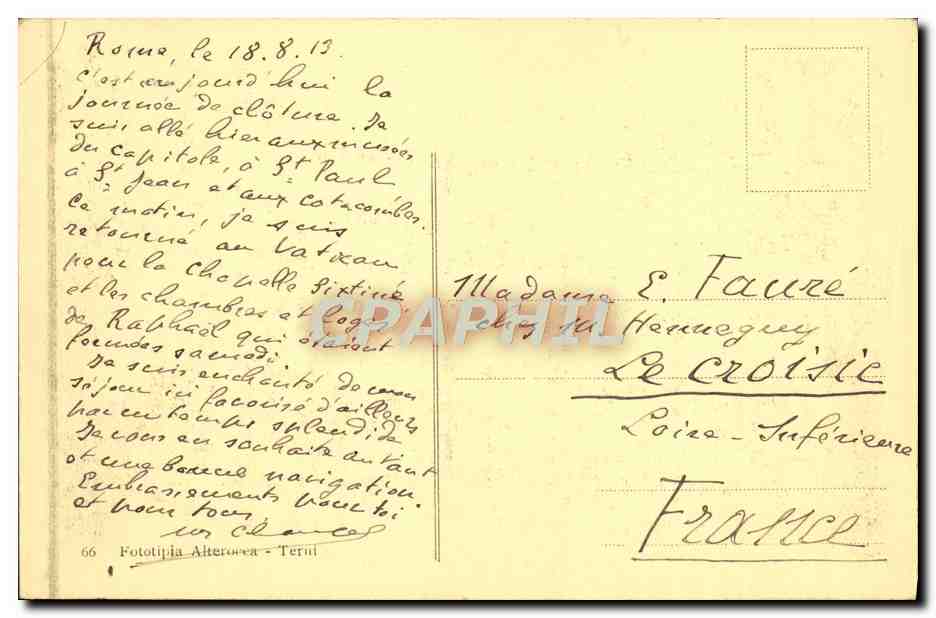 Rome, le 18.8.13.
c'est aujourd'hui la
journée de clôture. Je
suis allé hier aux musées
du capitole, à St Paul
à St Jean et aux catacombes.
Ce matin, je suis
retourné au Vatican
pour la chapelle Sixtine
et les chambres et loges
de Raphaël qui étaient
fermées samedi.
Je suis enchanté de mon
séjour ici favorisé d'ailleurs
par un temps splendide
Je vous en souhaite autant
et une bonne navigation
Embrassements pour toi
et pour tous
66 Fototipia Alterocca - Terni
Madame E. Fauré
chez M. Henneguy
Le Croisic
Loire-Inférieure
France
CPAPHIL